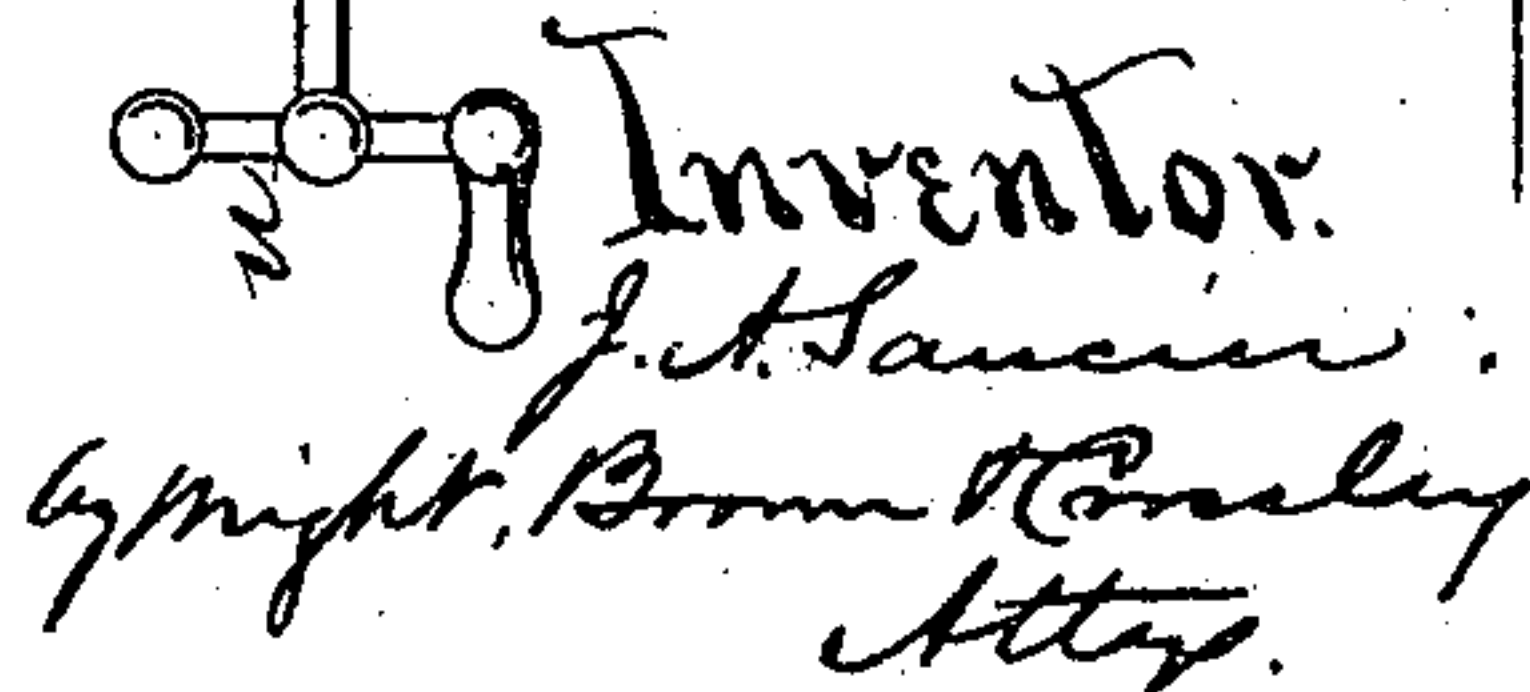 Inventor.
J. A. Saucier.
by Wright, Brown & Crossley
Attys.